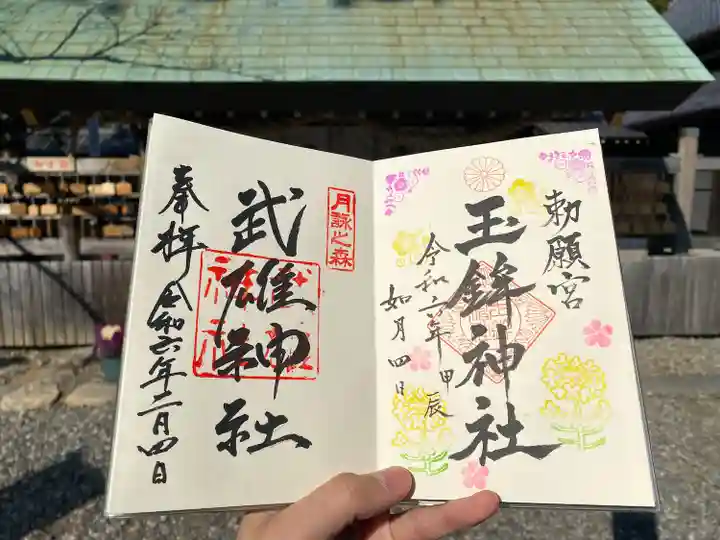 勅願宮
玉鉾神社
令和六年甲辰
如月四日
月詠之森
武雄神社
奉拝
令和六年二月四日